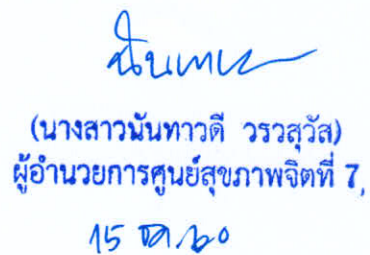 (นางสาวนันทาวดี วรวสุวัส)
ผู้อำนวยการศูนย์สุขภาพจิตที่ 7
15 ธค. ๖๐